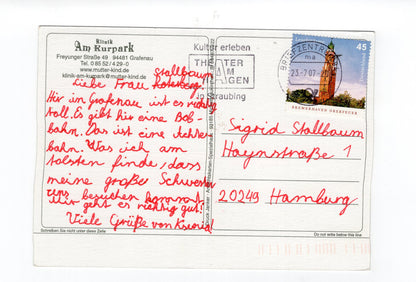 Klinik
Am Kurpark
Freyunger Straße 49 94481 Grafenau
Tel. 0 85 52 / 4 29-0
www.mutter-kind.de
klinik-am-kurpark@mutter-kind.de
Stallbaum
Liebe Frau
Hir in Grafenau ist es richtig
toll. Es gibt hir eine Bob-
bahn. Das ist eine Achter-
bahn. Was ich am
tolsten finde, dass
meine großer Schwester
uns besuchen kommt
Mir geht es richtig gut!
Viele Grüße von
Schreiben Sie nicht unter diese Zeile
Kultur erleben
THEATER
AM
HAGEN
in Straubing
BRIEFZENTRUM
ma
23.-7.07-
45
BREMERHAVEN OBERFEUER
Sigrid Stallbaum
Haynstraße 1
20249 Hamburg
Do not write below this line